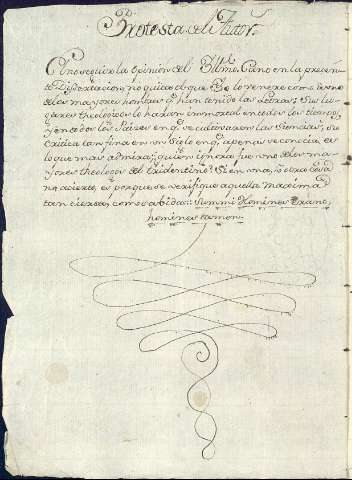 Protesta del Autor.
El no seguir la opinion del Illmo. Cano en la presen
te Dissertacion, no quita el que Yo lo venere como à uno
de los mayores hombres q. han tenido las Letras: Sus Lu
gares theologicos lo haran immortal en todos los tiempos,
y en todos los Paises en q. se cultivaren las Siencias; Su
critica tan fina en un Siglo en q. apenas se conocia, es
lo que mas admira; quien ignora fue uno de los ma
yores theologos del tridentino? Si en una, ù otra cosa
no acierta, es porque se verifique aquella maxima
tan cierta, como sabida: Summi Homines erant,
homines tamen.